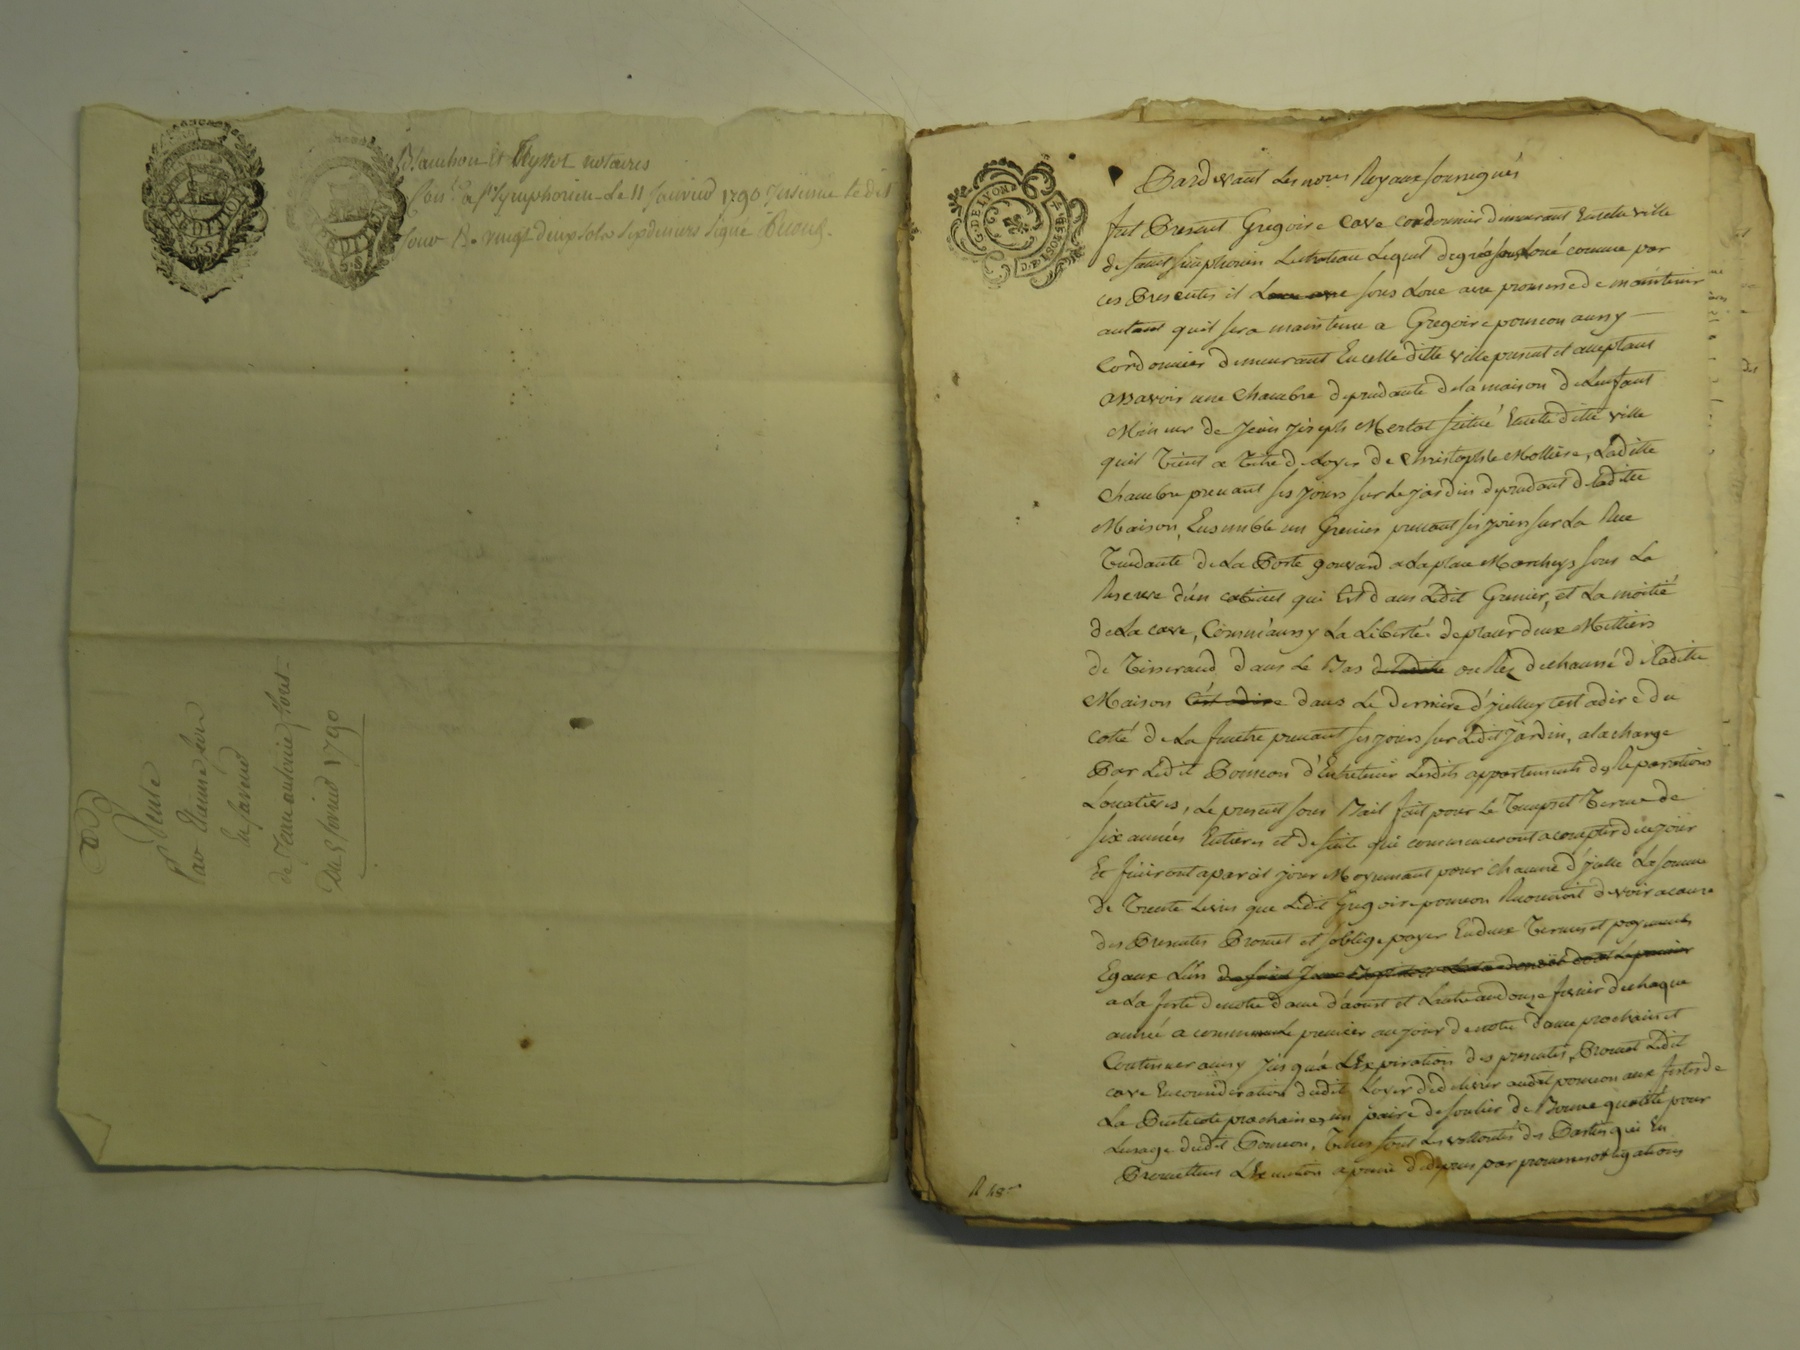 Blanchon et Teyssot notaires
Con.é a St Symphorien le 11 janvier 1790
vingt deux sols six deniers signé
Vente
par Etienne
de Jean antoine
Du 8 fevrier 1790
G. DE LYON
Pardevant les nores Royaux soussignés
fut Present Gregoire Cave Cordonnier demeurant En cette ville
de saint simphorien Lechateau Lequel de gré a sous Loué comme par
ces Presentes il sous Loue avec promesse de maintenir
autant quil sera maintenu a Gregoire poncon aussy
Cordonnier demeurant En cette ditte ville present et acceptant
assavoir une Chambre dependante de la maison de Lenfant
Mineur de Jean Joseph Merlat situé En cette ditte ville
quil Tient a Titre de Loyer de Christophle Mollière, Laditte
Chambre prenant ses jours sur le jardin dependant de laditte
Maison, Ensemble un Grenier prenant ses jours sur La Rue
Tendante de La Porte gouvard a la place sous La
Reserve d'un cabinet qui Est dans Ledit Grenier, et La moitié
de La cave, Comm'aussy La Liberté de placer deux Mettiers
de Tisserand dans Le Bas ou Rez dechaussé de Laditte
Maison c'est adire dans Le derriere d'jcelluy c'est adire du
coté de La fenetre prenant ses jours sur Ledit Jardin, a la charge
Par Ledit Poncon d'Entretenir Lesdits appartements des Reparations
Locatives, Le present sous Bail fait pour Le Temps et Terme de
six années Entieres et de suite qui commenceront a compter de ce jour
Et finiront a pareil jour Moyennant pour chacune d'jcelle La somme
de Trente Livres que Ledit Gregoire poncon Reconnoit devoir a cause
des Presentes Promet et soblige payer En deux Termes et payements
Egaux L'un
a La feste de notre Dame d'aoust et Lautre au douze fevrier de chaque
année a commencer Le premier au jour de notre dame prochain et
Continuer ainsy jusqu'a L'Expiration des presentes, Promet Ledit
cave En consideration dudit Loyer de delivrer audit poncon aux festes de
La Pentecote prochaine, un paire de soulier de Bonne qualité pour
Lusage dudit Poncon, Telles sont Les vollontés des Parties qui En
Promettent L'Execution a peine d'depens par promesse obligations